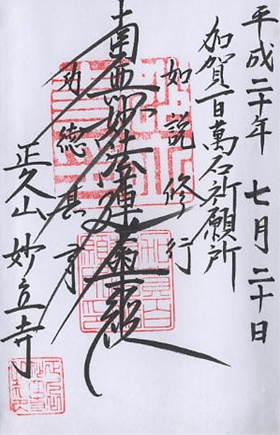 平成二十年七月二十日
加賀百萬石祈願所
如説修行
南無妙法蓮華経
功徳甚多
正久山妙立寺